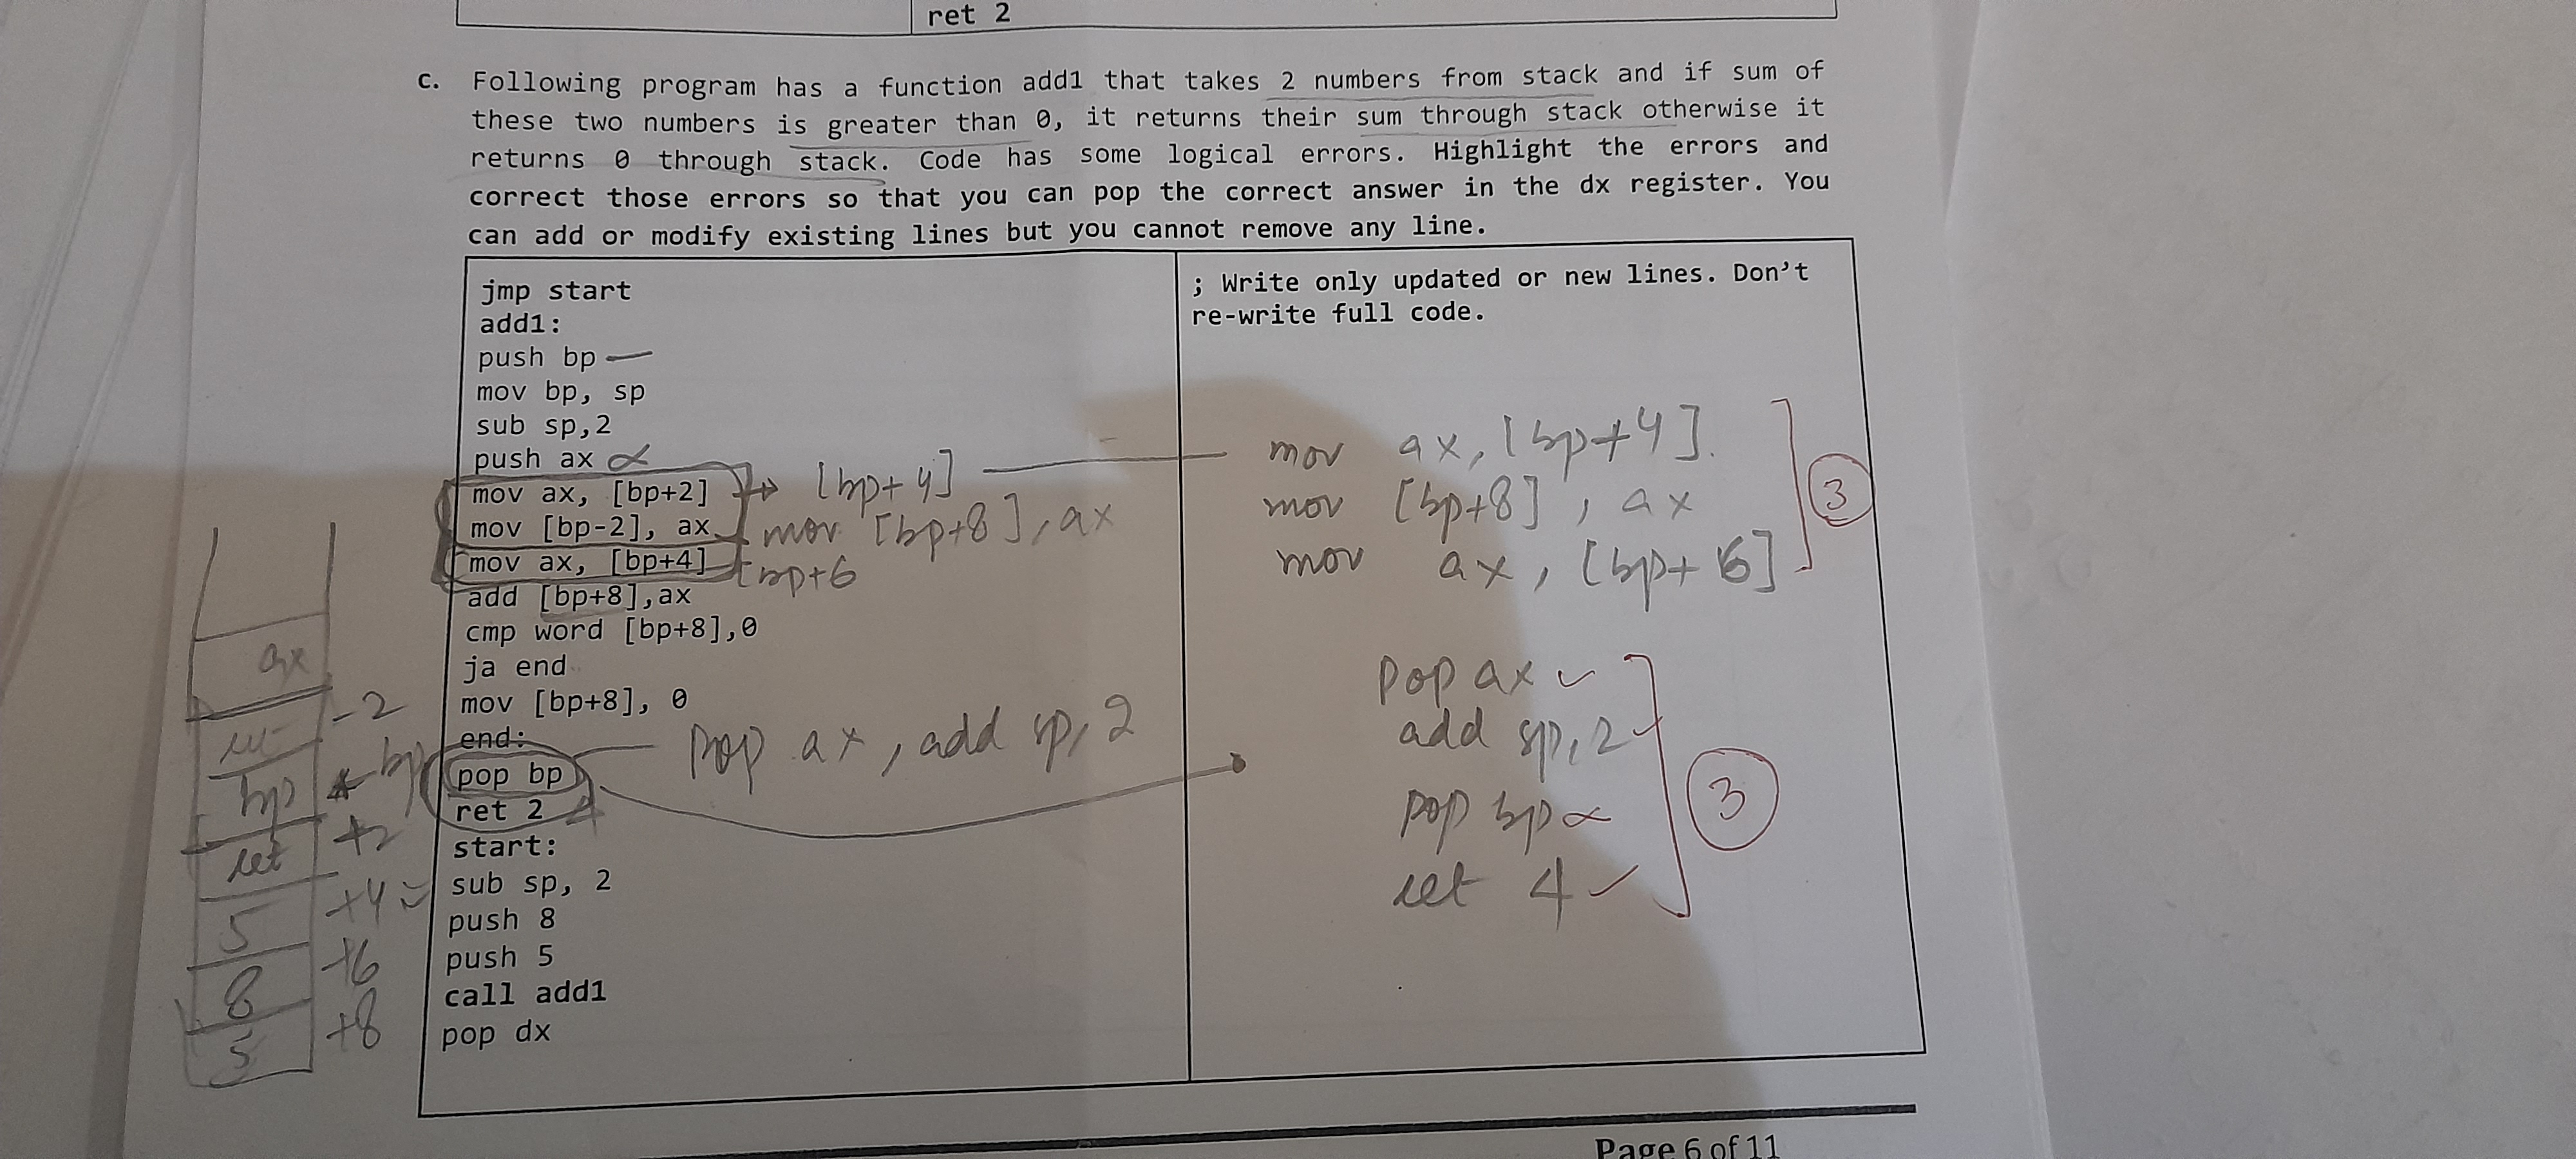 ret 2
c. Following program has a function add1 that takes 2 numbers from stack and if sum of
these two numbers is greater than 0, it returns their sum through stack otherwise it
returns 0 through stack. Code has some logical errors. Highlight the errors and
correct those errors so that you can pop the correct answer in the dx register. You
can add or modify existing lines but you cannot remove any line.
jmp start
add1:
push bp
mov bp, sp
sub sp,2
push ax
mov ax, [bp+2] [bp+4]
mov [bp-2], ax mov [bp+8], ax
mov ax, [bp+4] [bp+6
add [bp+8],ax
cmp word [bp+8],0
ja end
mov [bp+8], 0
end: pop ax, add sp, 2
pop bp
ret 2 4
start:
sub sp, 2
push 8
push 5
call add1
pop dx
; Write only updated or new lines. Don't
re-write full code.
mov ax, [bp+4]
mov [bp+8], ax
mov ax, [bp+6]
3
pop ax
add sp, 2
pop bp
ret 4
3
ax
-2
bp ← bp
ret +2
5 +4
8 +6
5 +8
Page 6 of 11